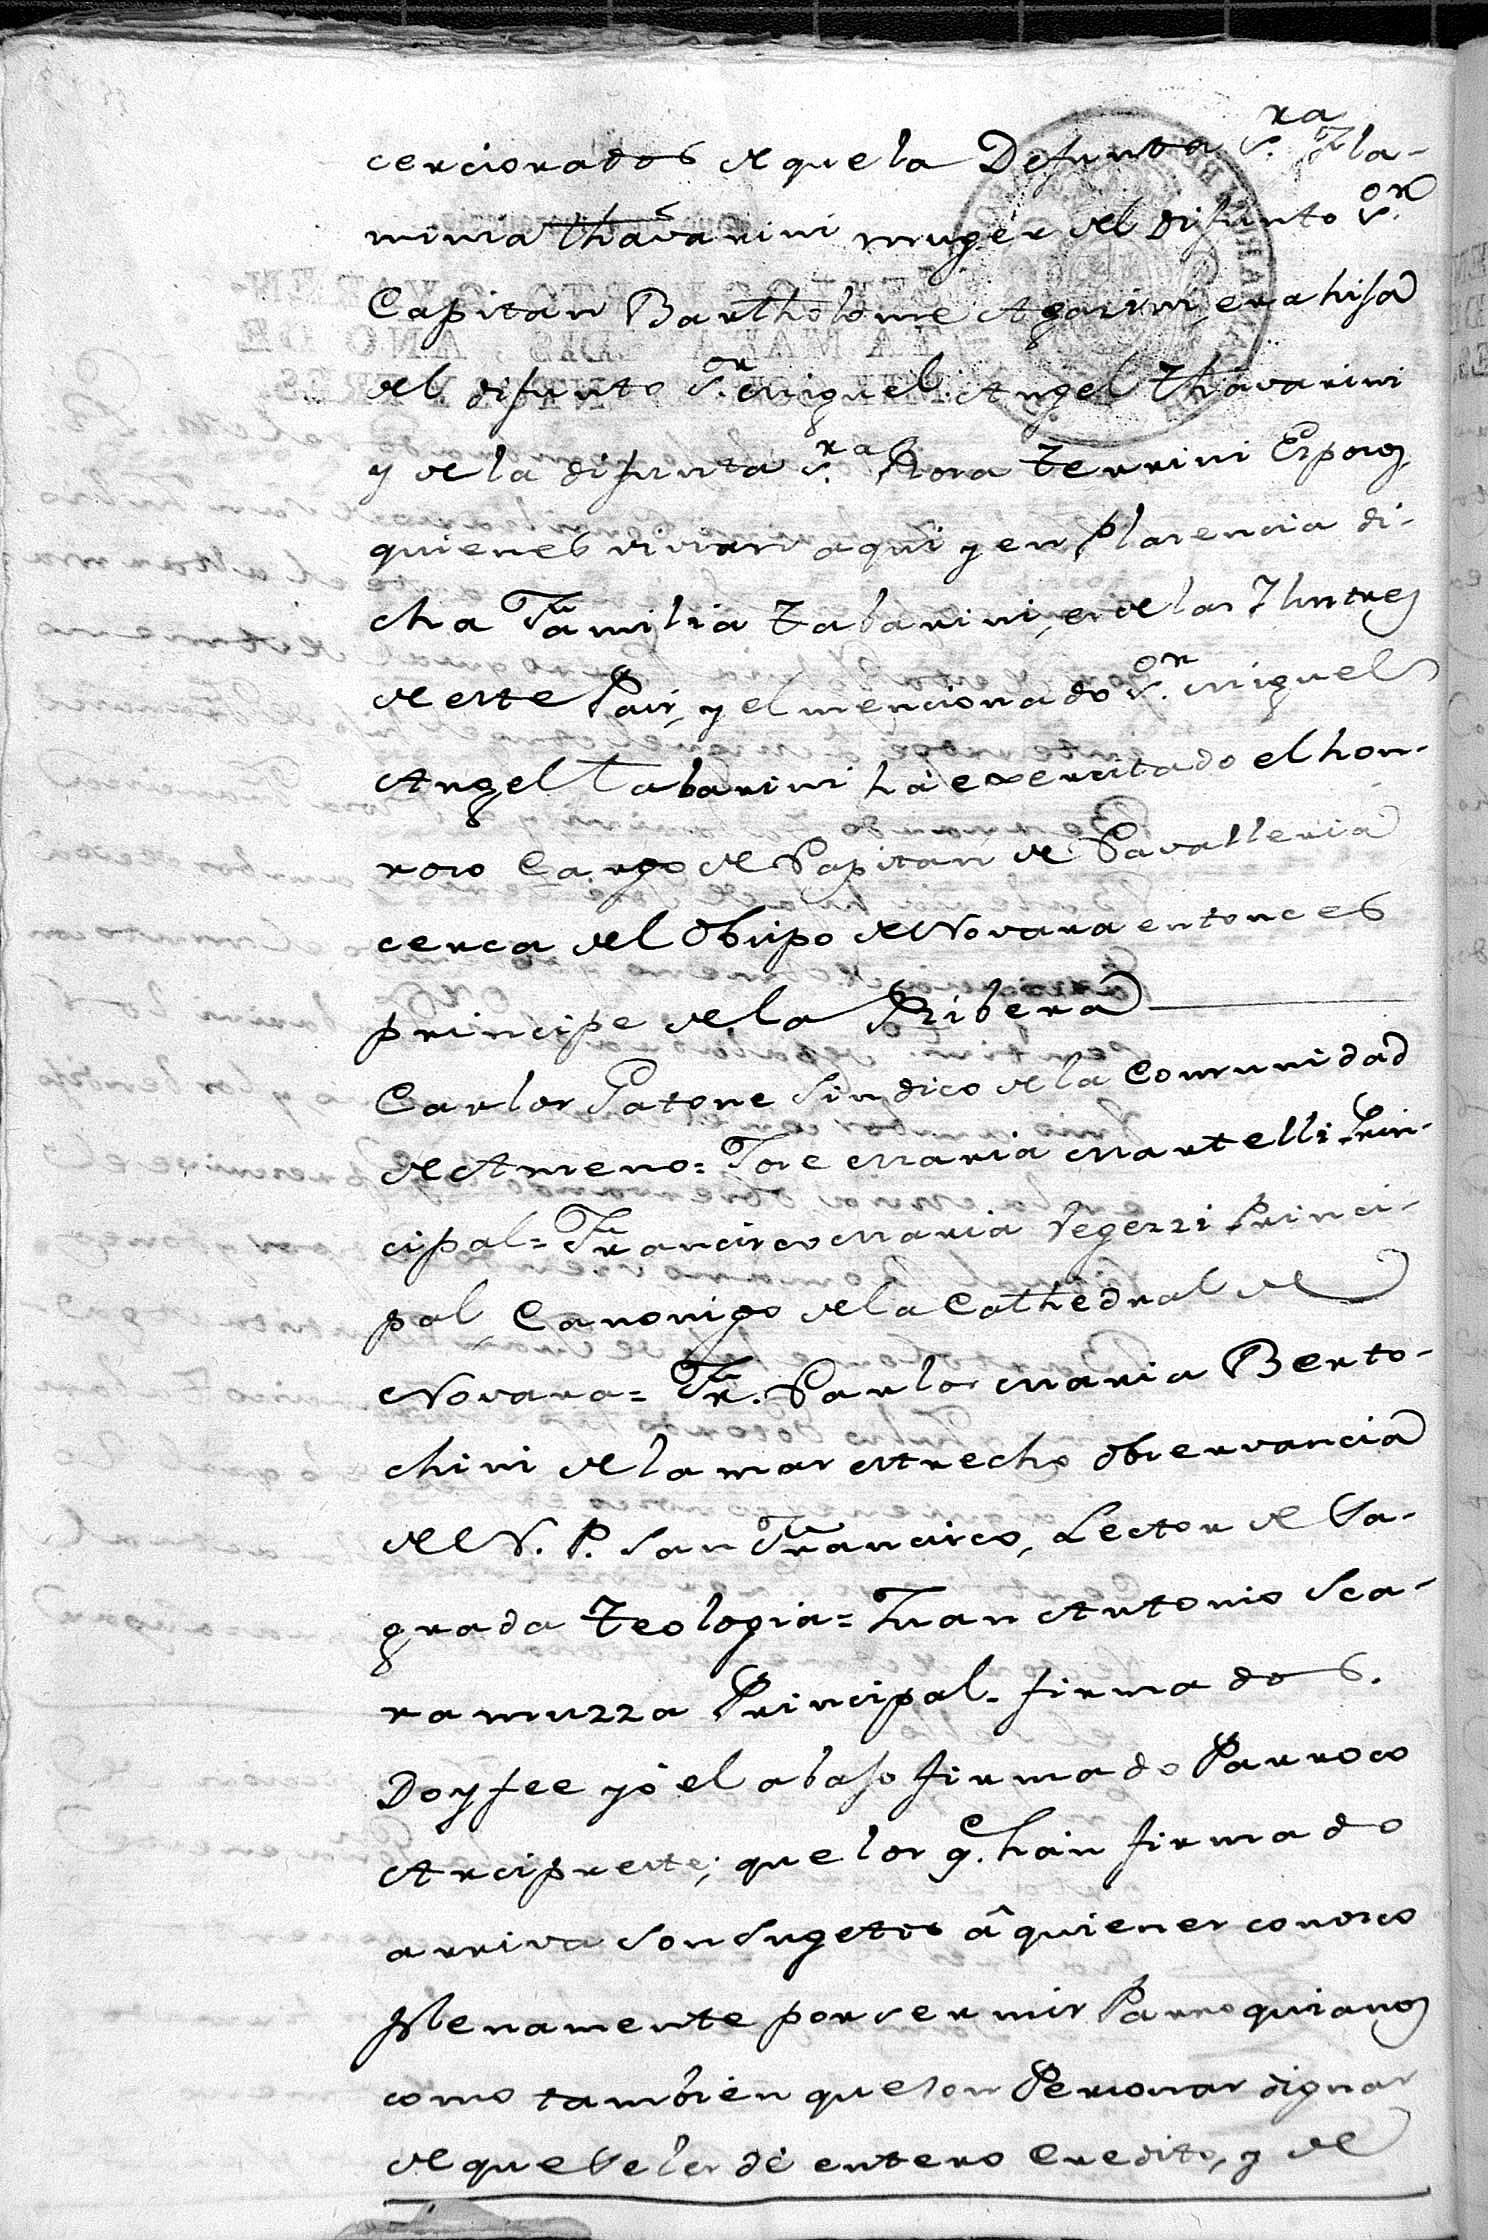 cerciorados de que la Defunta S.ra Fla-
minia Thavarini muger del difunto S.or
Capitan Bartholome Agazini, era hija
del difunto S.or Miguel Angel Thavarini
y de la difunta S.ra Flora Terrini Esposos
quienes vivian aqui y en Plasencia di-
cha Familia Tabarini, es de las Ilustres
de este Pais, y el mencionado S.or Miguel
Angel Tabarini hà exercitado el hon-
roso Cargo de Capitan de Cavalleria
cerca del Obispo de Novara entonces
principe de la Ribera
Carlos Patone Sindico de la Comunidad
de Ameno = Jose Maria Martelli Prin-
cipal = Francisco Maria Vegezzi Princi-
pal, Canonigo de la Cathedral de
Novara = Fr. Carlos Maria Berto-
chini de la mas estrecha observancia
de N. P. San Francisco, Lector de Sa-
grada Teologia = Juan Antonio Sca-
ramuzza Principal = firmados.
Doy fee yò el abajo firmado Parroco
Arcipreste; que los q.e hàn firmado
arriva son sugetos â quienes conosco
plenamente por ser mis Parroquianos
como tambien que son Personas dignas
de que se les dè entero Credito, y de